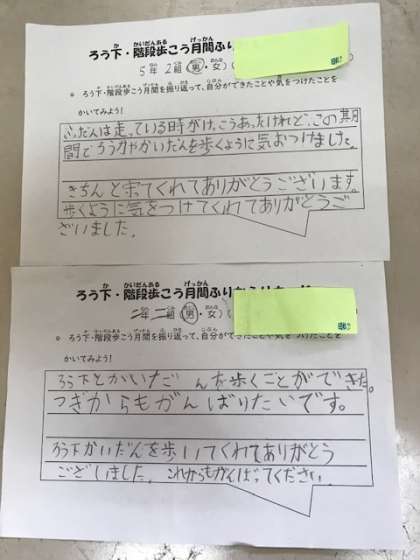 ろう下・階段歩こう月間ふり
5年 2組 (男・女)
ろう下・階段歩こう月間を振り返って、自分ができたことや気をつけたことを
かいてみよう!
ふだんは走っている時がけっこうあったけれど、この期
間でろうかやかいだんを歩くように気おつけました。
きちんと来てくれてありがとうございます。
歩くように気をつけてくれてありがとうご
ざいました。
ろう下・階段歩こう月間ふりかえりカード
二年 二組 (男・女)
ろう下・階段歩こう月間を振り返って、自分ができたことや気をつけたことを
かいてみよう!
ろう下とかいだんを歩くことができた。
つぎからもがんばりたいです。
ろう下かいだんを歩いてくれてありがとう
ございました。これからもがんばってください。